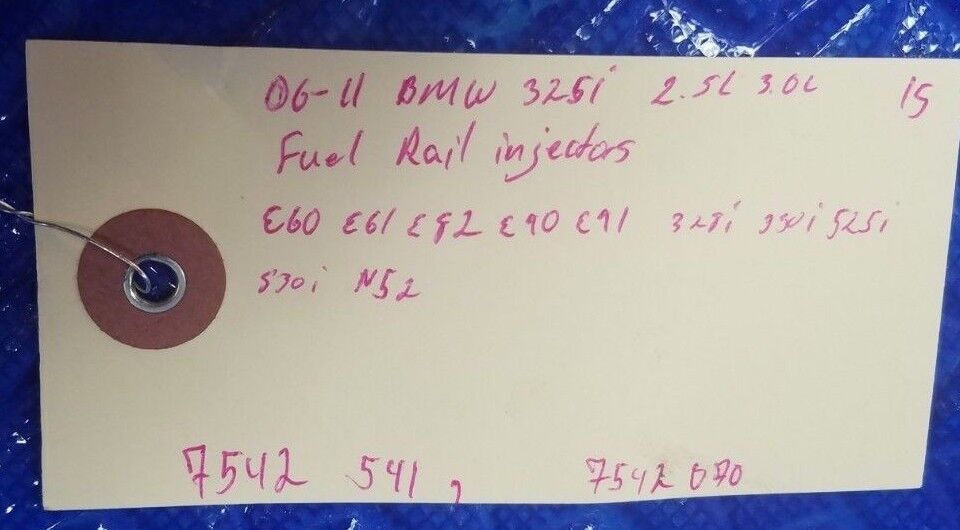 06-11 BMW 325i 2.5L 3.0L 15
Fuel Rail injectors
E60 E61 E82 E90 E91 328i 330i 525i
530i N52
7542 541, 7542 070